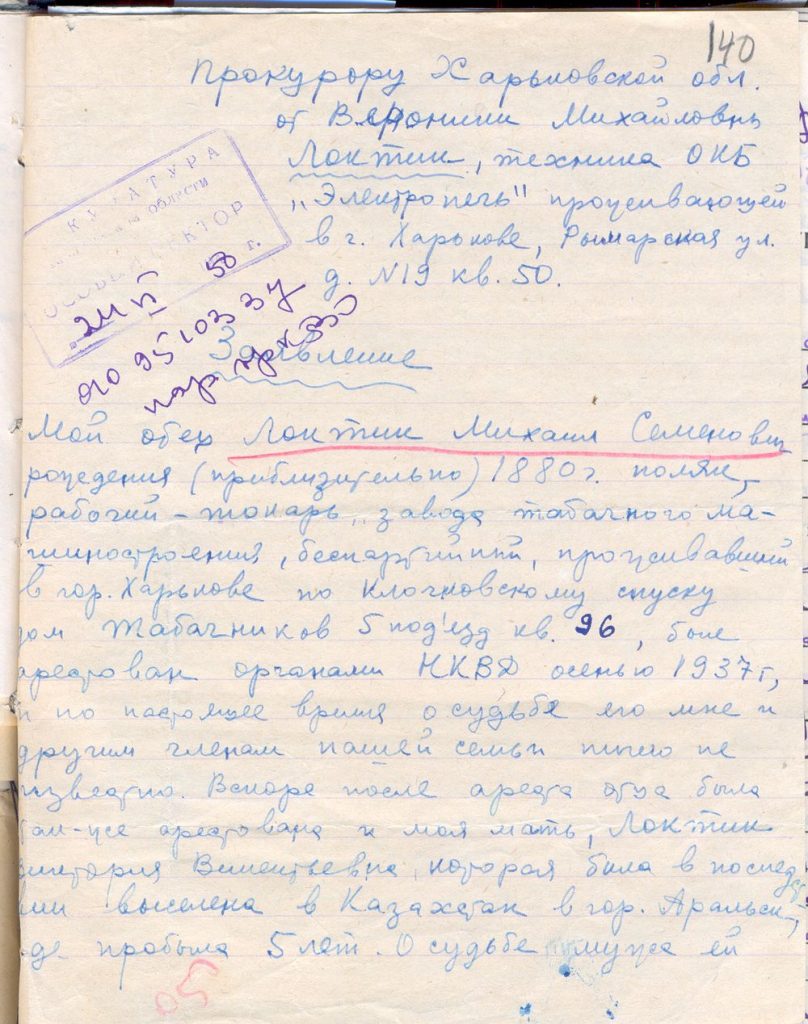 140
Прокурору Харьковской обл.
от Вероники Михайловны
Локтик, техника ОКБ
"Электропечь" проживающей
в г. Харькове, Рымарская ул.
д. N19 кв. 50.
КУРАТУРА
ОБЛАСТИ
ОСОБЫЙ СЕКТОР
г.
Заявление
Мой отец Локтик Михаил Семенович
рождения (приблизительно) 1880г. поляк,
рабочий - токарь, завода табачного ма-
шиностроения, беспартийный, проживавший
в гор. Харькове по Клочковскому спуску
дом Табачников 5 под'езд кв. 96, был
арестован органами НКВД осенью 1937г,
и по настоящее время о судьбе его мне и
другим членам нашей семьи ничего не
известно. Вскоре после ареста отца была
так-же арестована и моя мать, Локтик
Виктория Викентьевна, которая была в последст
вии выселена в Казахстан в гор. Аральск,
где пробыла 5 лет. О судьбе мужа ей
05